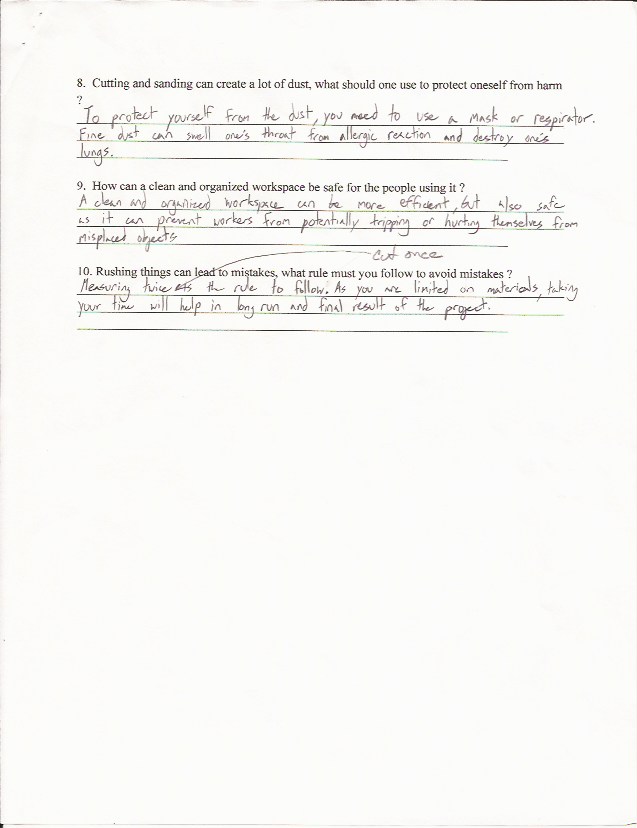 8. Cutting and sanding can create a lot of dust, what should one use to protect oneself from harm
?
To protect yourself from the dust, you need to use a mask or respirator.
Fine dust can swell one's throat from allergic reaction and destroy one's
lungs.
9. How can a clean and organized workspace be safe for the people using it ?
A clean and organized workspace can be more efficient, but also safe
as it can prevent workers from potentially tripping or hurting themselves from
misplaced objects
cut once
10. Rushing things can lead to mistakes, what rule must you follow to avoid mistakes ?
Measuring twice the rule to follow. As you are limited on materials, taking
your time will help in long run and final result of the project.